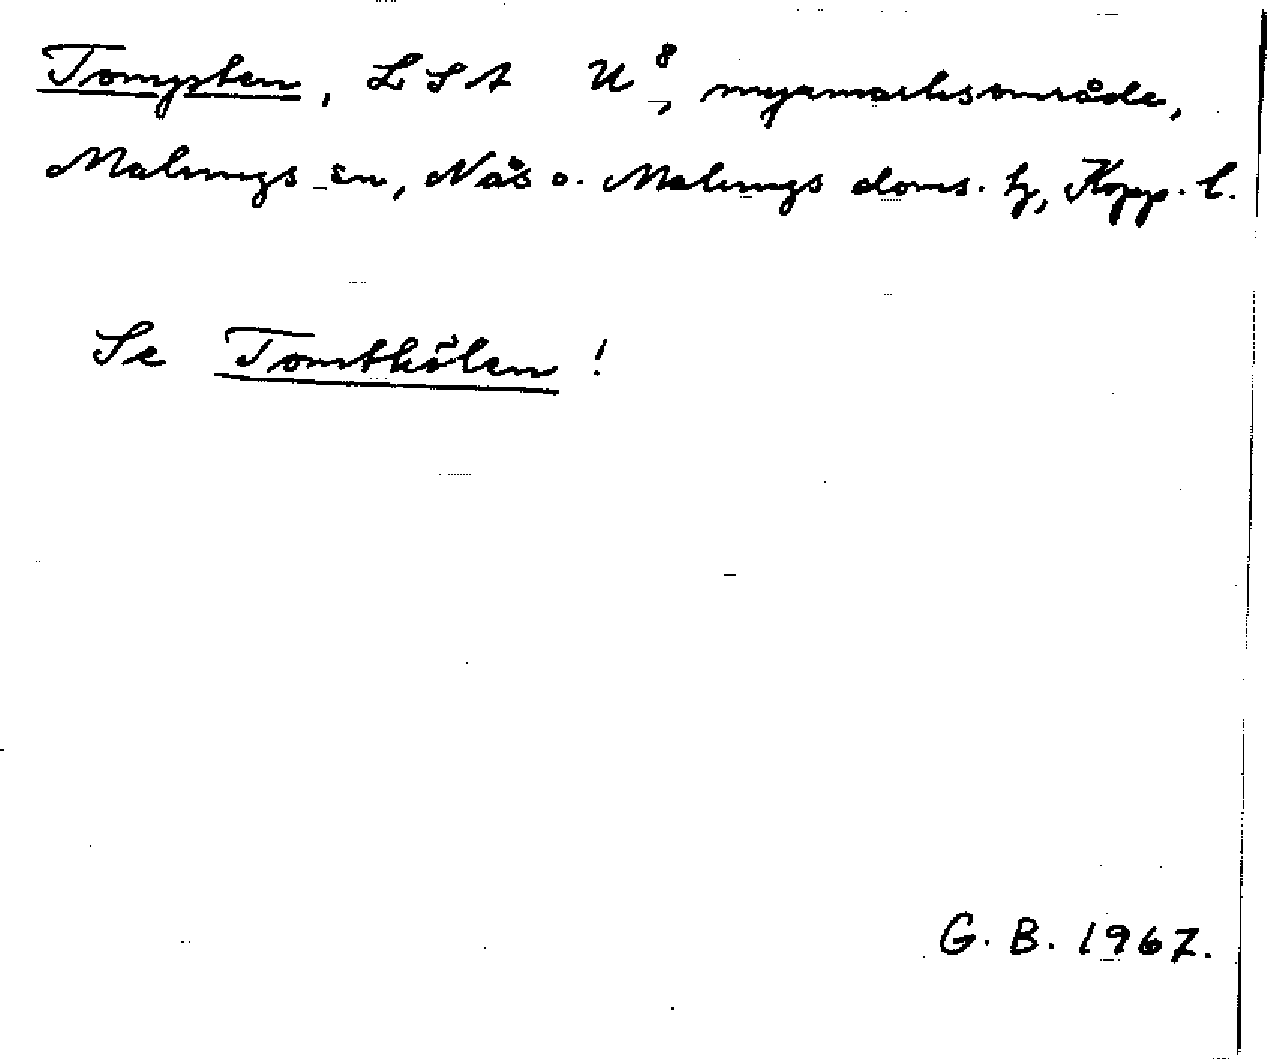 Tomysten, LSA U⁸, myrmarksområde,
Malungs sn, Nås o. Malungs doms. hg, Kopp. l.
Se Tomtkölen!
G. B. 1967.